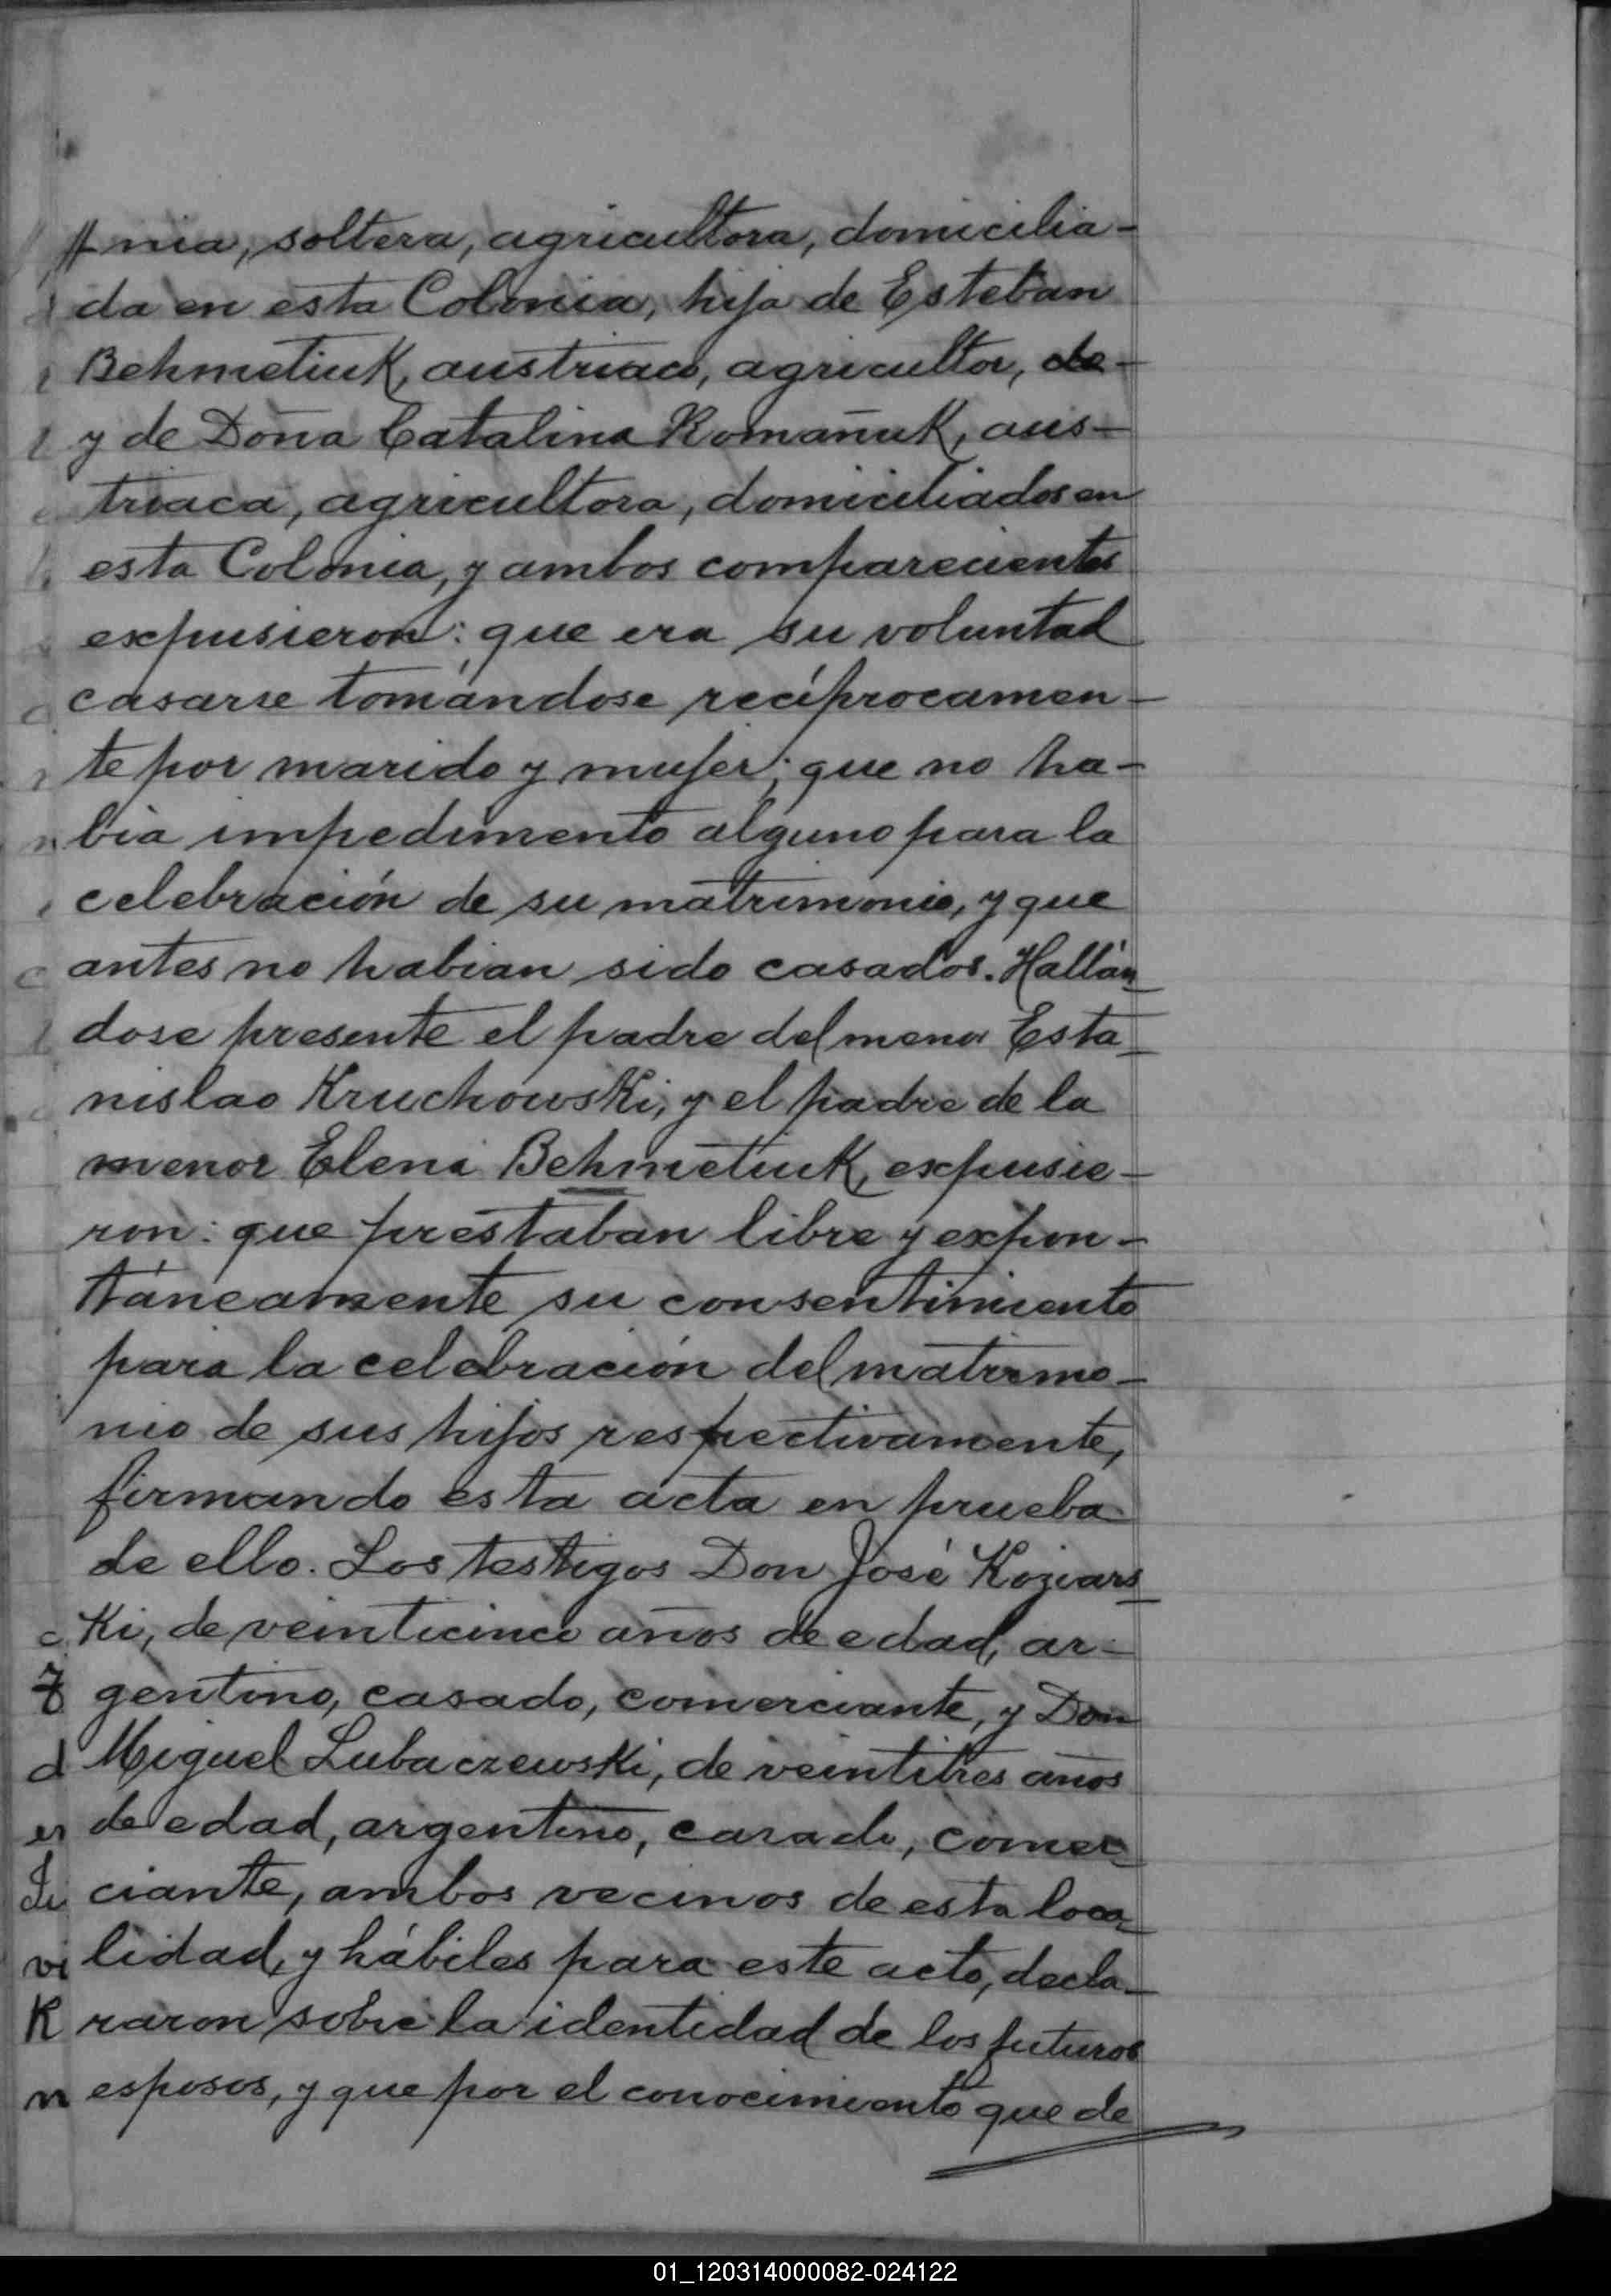 nia, soltera, agricultora, domicilia-
da en esta Colonia, hija de Esteban
Behmetiuk, austriaco, agricultor, de-
y de Doña Catalina Romañuk, aus-
triaca, agricultora, domiciliados en
esta Colonia, y ambos comparecientes
expusieron: que era su voluntad
casarse tomándose recíprocamen-
te por marido y mujer; que no ha-
bia impedimento alguno para la
celebración de su matrimonio, y que
antes no habian sido casados. Hallán
dose presente el padre del menor Esta
nislao Kruchowski, y el padre de la
menor Elena Behmetiuk, expusie-
ron: que prestaban libre y expon-
táneamente su consentimiento
para la celebración del matrimo-
nio de sus hijos respectivamente,
firmando esta acta en prueba
de ello. Los testigos Don José Koziars
Ki, de veinticinco años de edad, ar-
gentino, casado, comerciante, y Don
Miguel Lubaczewski, de veintitres años
de edad, argentino, casado, comer
ciante, ambos vecinos de esta loca
lidad, y hábiles para este acto, decla-
raron sobre la identidad de los futuros
esposos, y que por el conocimiento que de
01_120314000082-024122